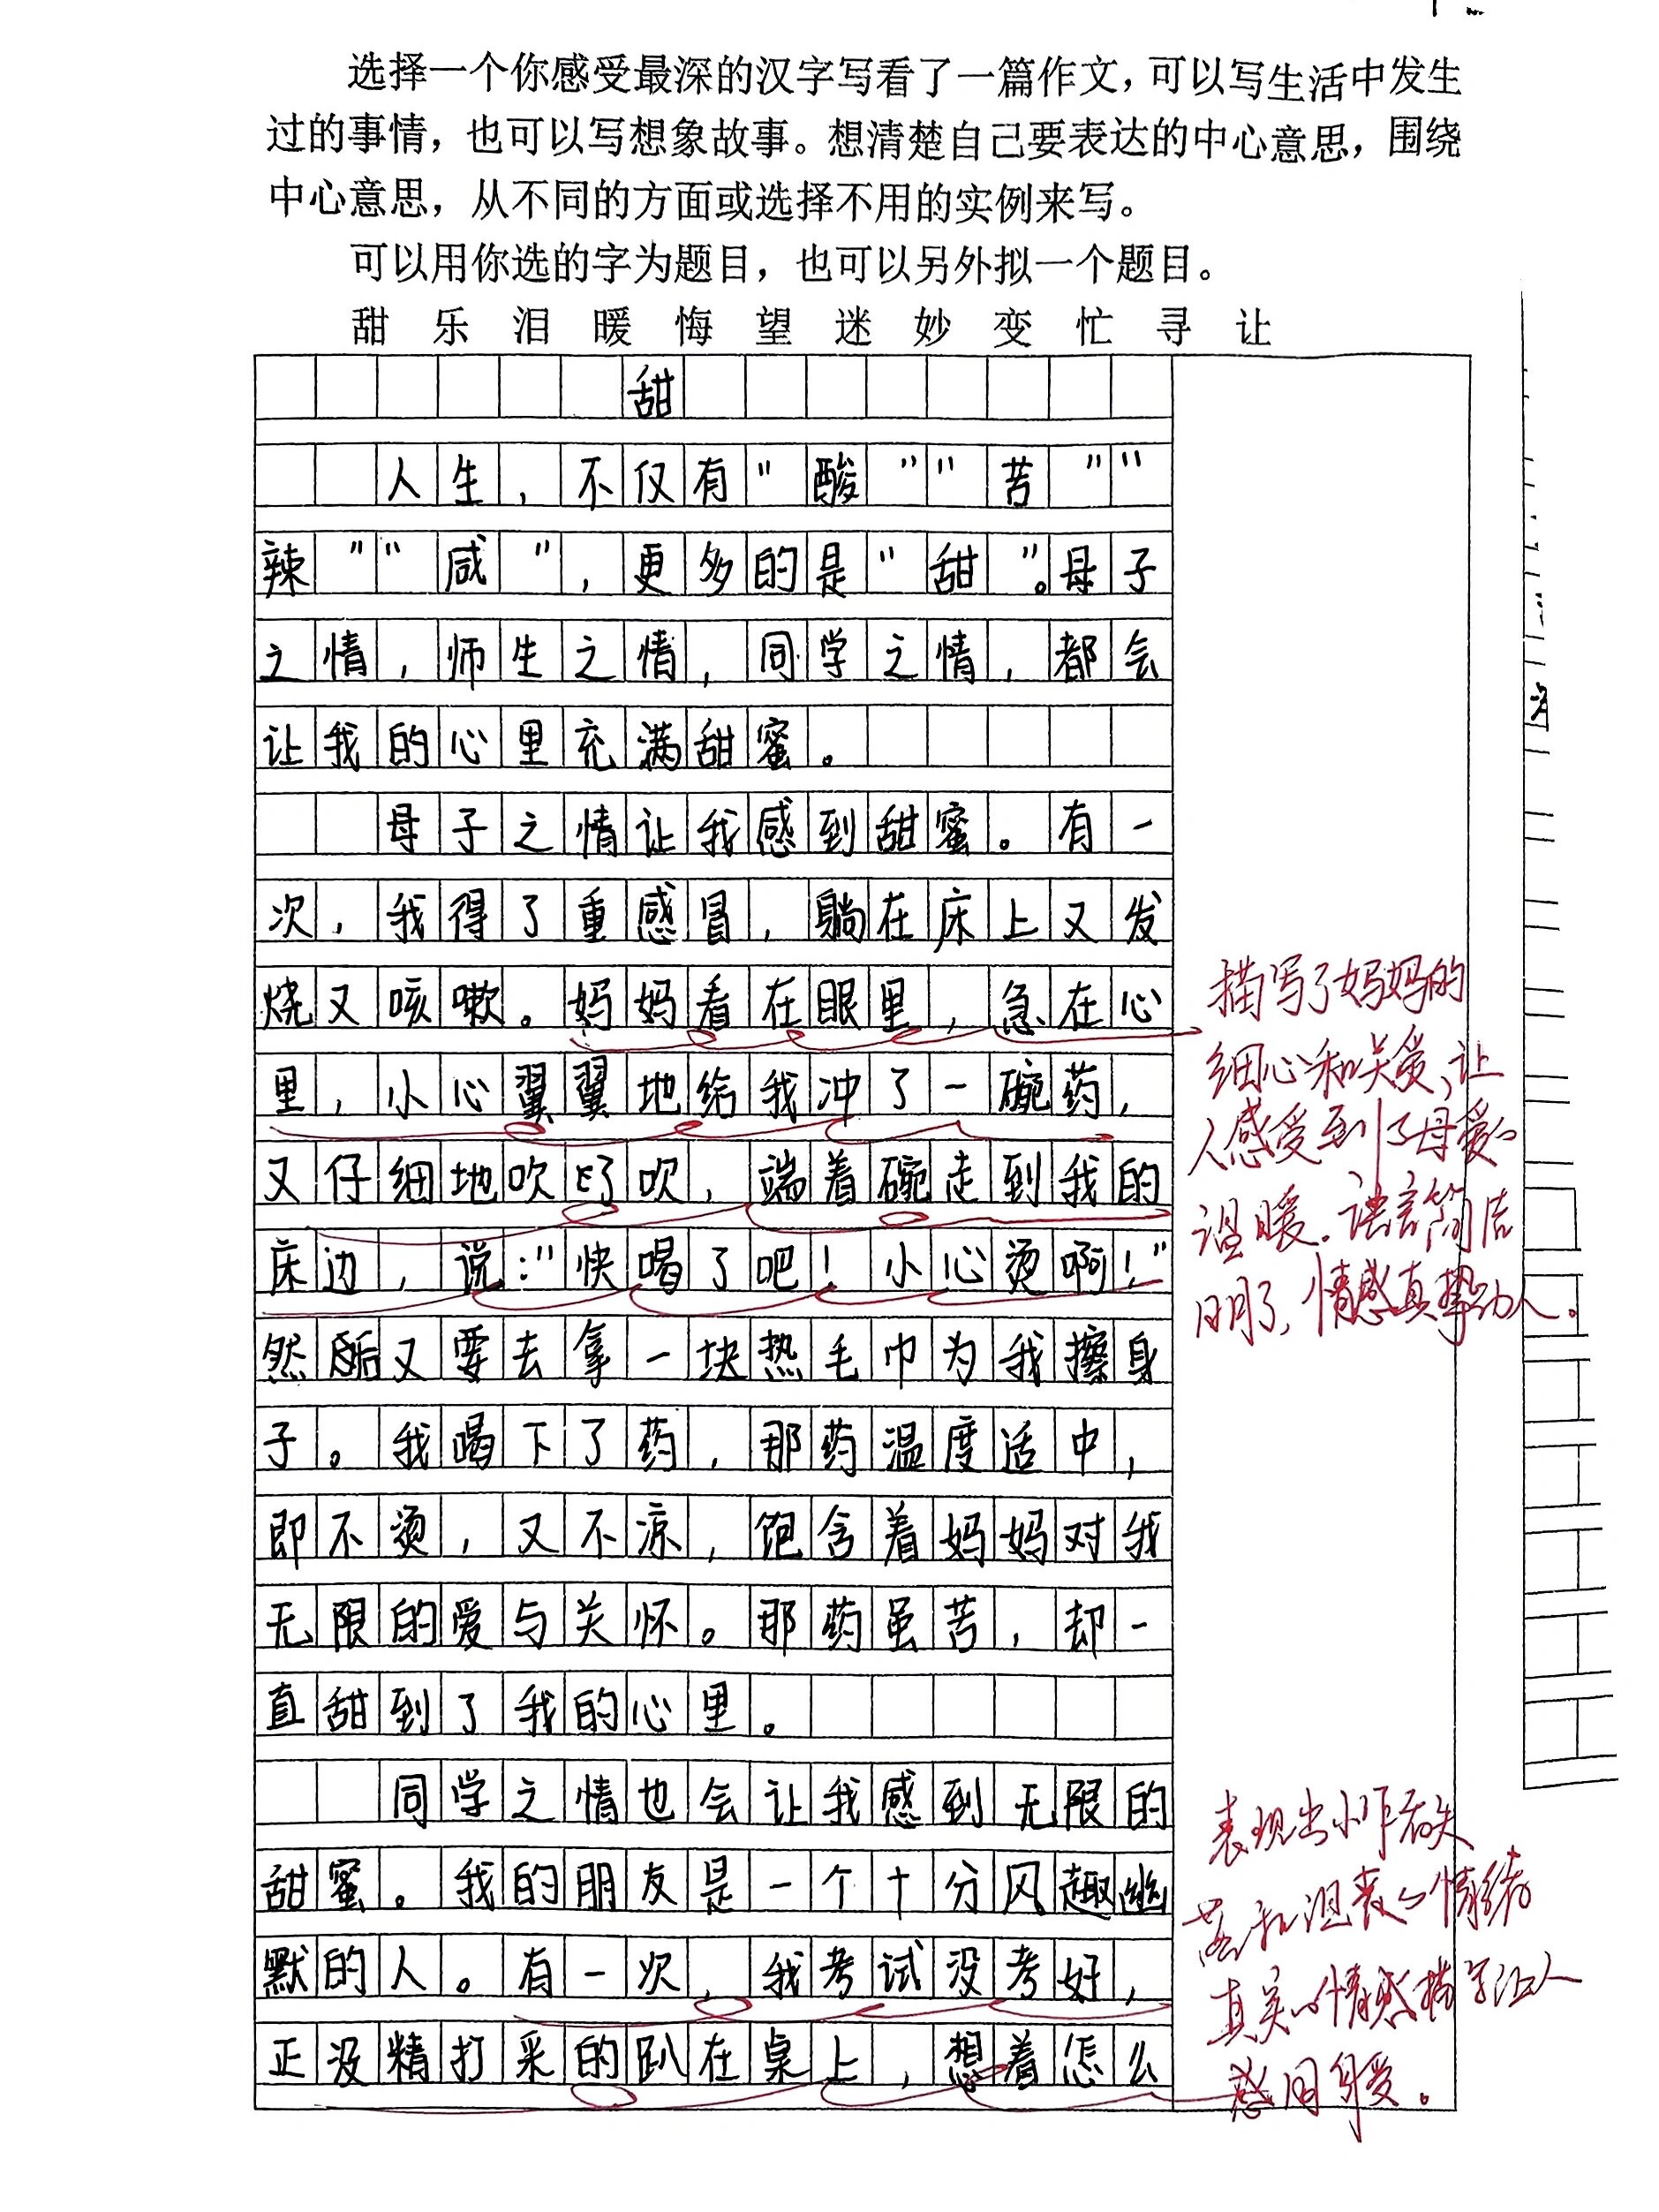 选择一个你感受最深的汉字写看了一篇作文，可以写生活中发生
过的事情，也可以写想象故事。想清楚自己要表达的中心意思，围绕
中心意思，从不同的方面或选择不用的实例来写。
可以用你选的字为题目，也可以另外拟一个题目。
甜 乐 泪 暖 悔 望 迷 妙 变 忙 寻 让
甜
人生，不仅有“酸”“苦”“
辣”“咸”，更多的是“甜”。母子
之情，师生之情，同学之情，都会
让我的心里充满甜蜜。
母子之情让我感到甜蜜。有一
次，我得了重感冒，躺在床上又发
烧又咳嗽。妈妈看在眼里，急在心
里，小心翼翼地给我冲了一碗药，
又仔细地吹了吹，端着碗走到我的
床边，说：“快喝了吧！小心烫啊！”
然后又要去拿一块热毛巾为我擦身
子。我喝下了药，那药温度适中，
即不烫，又不凉，饱含着妈妈对我
无限的爱与关怀。那药虽苦，却一
直甜到了我的心里。
同学之情也会让我感到无限的
甜蜜。我的朋友是一个十分风趣幽
默的人。有一次，我考试没考好，
正没精打采的趴在桌上，想着怎么
描写了妈妈的
细心和关爱，让
人感受到了母爱的
温暖。语言简洁
明了，情感真挚动人。
表现出小作者失
落和沮丧的情绪
真实的情感描写让人
感同身受。